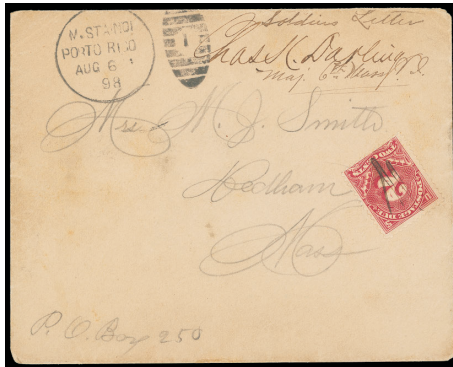 M. STA. NO 1
PORTO RICO
AUG 6
98
1
Soldiers Letter
Chas. K. Darling
Maj. 6th Mass
Mr. M. J. Smith
Dedham
Mass
POSTAGE DUE
2
P. O. Box 250